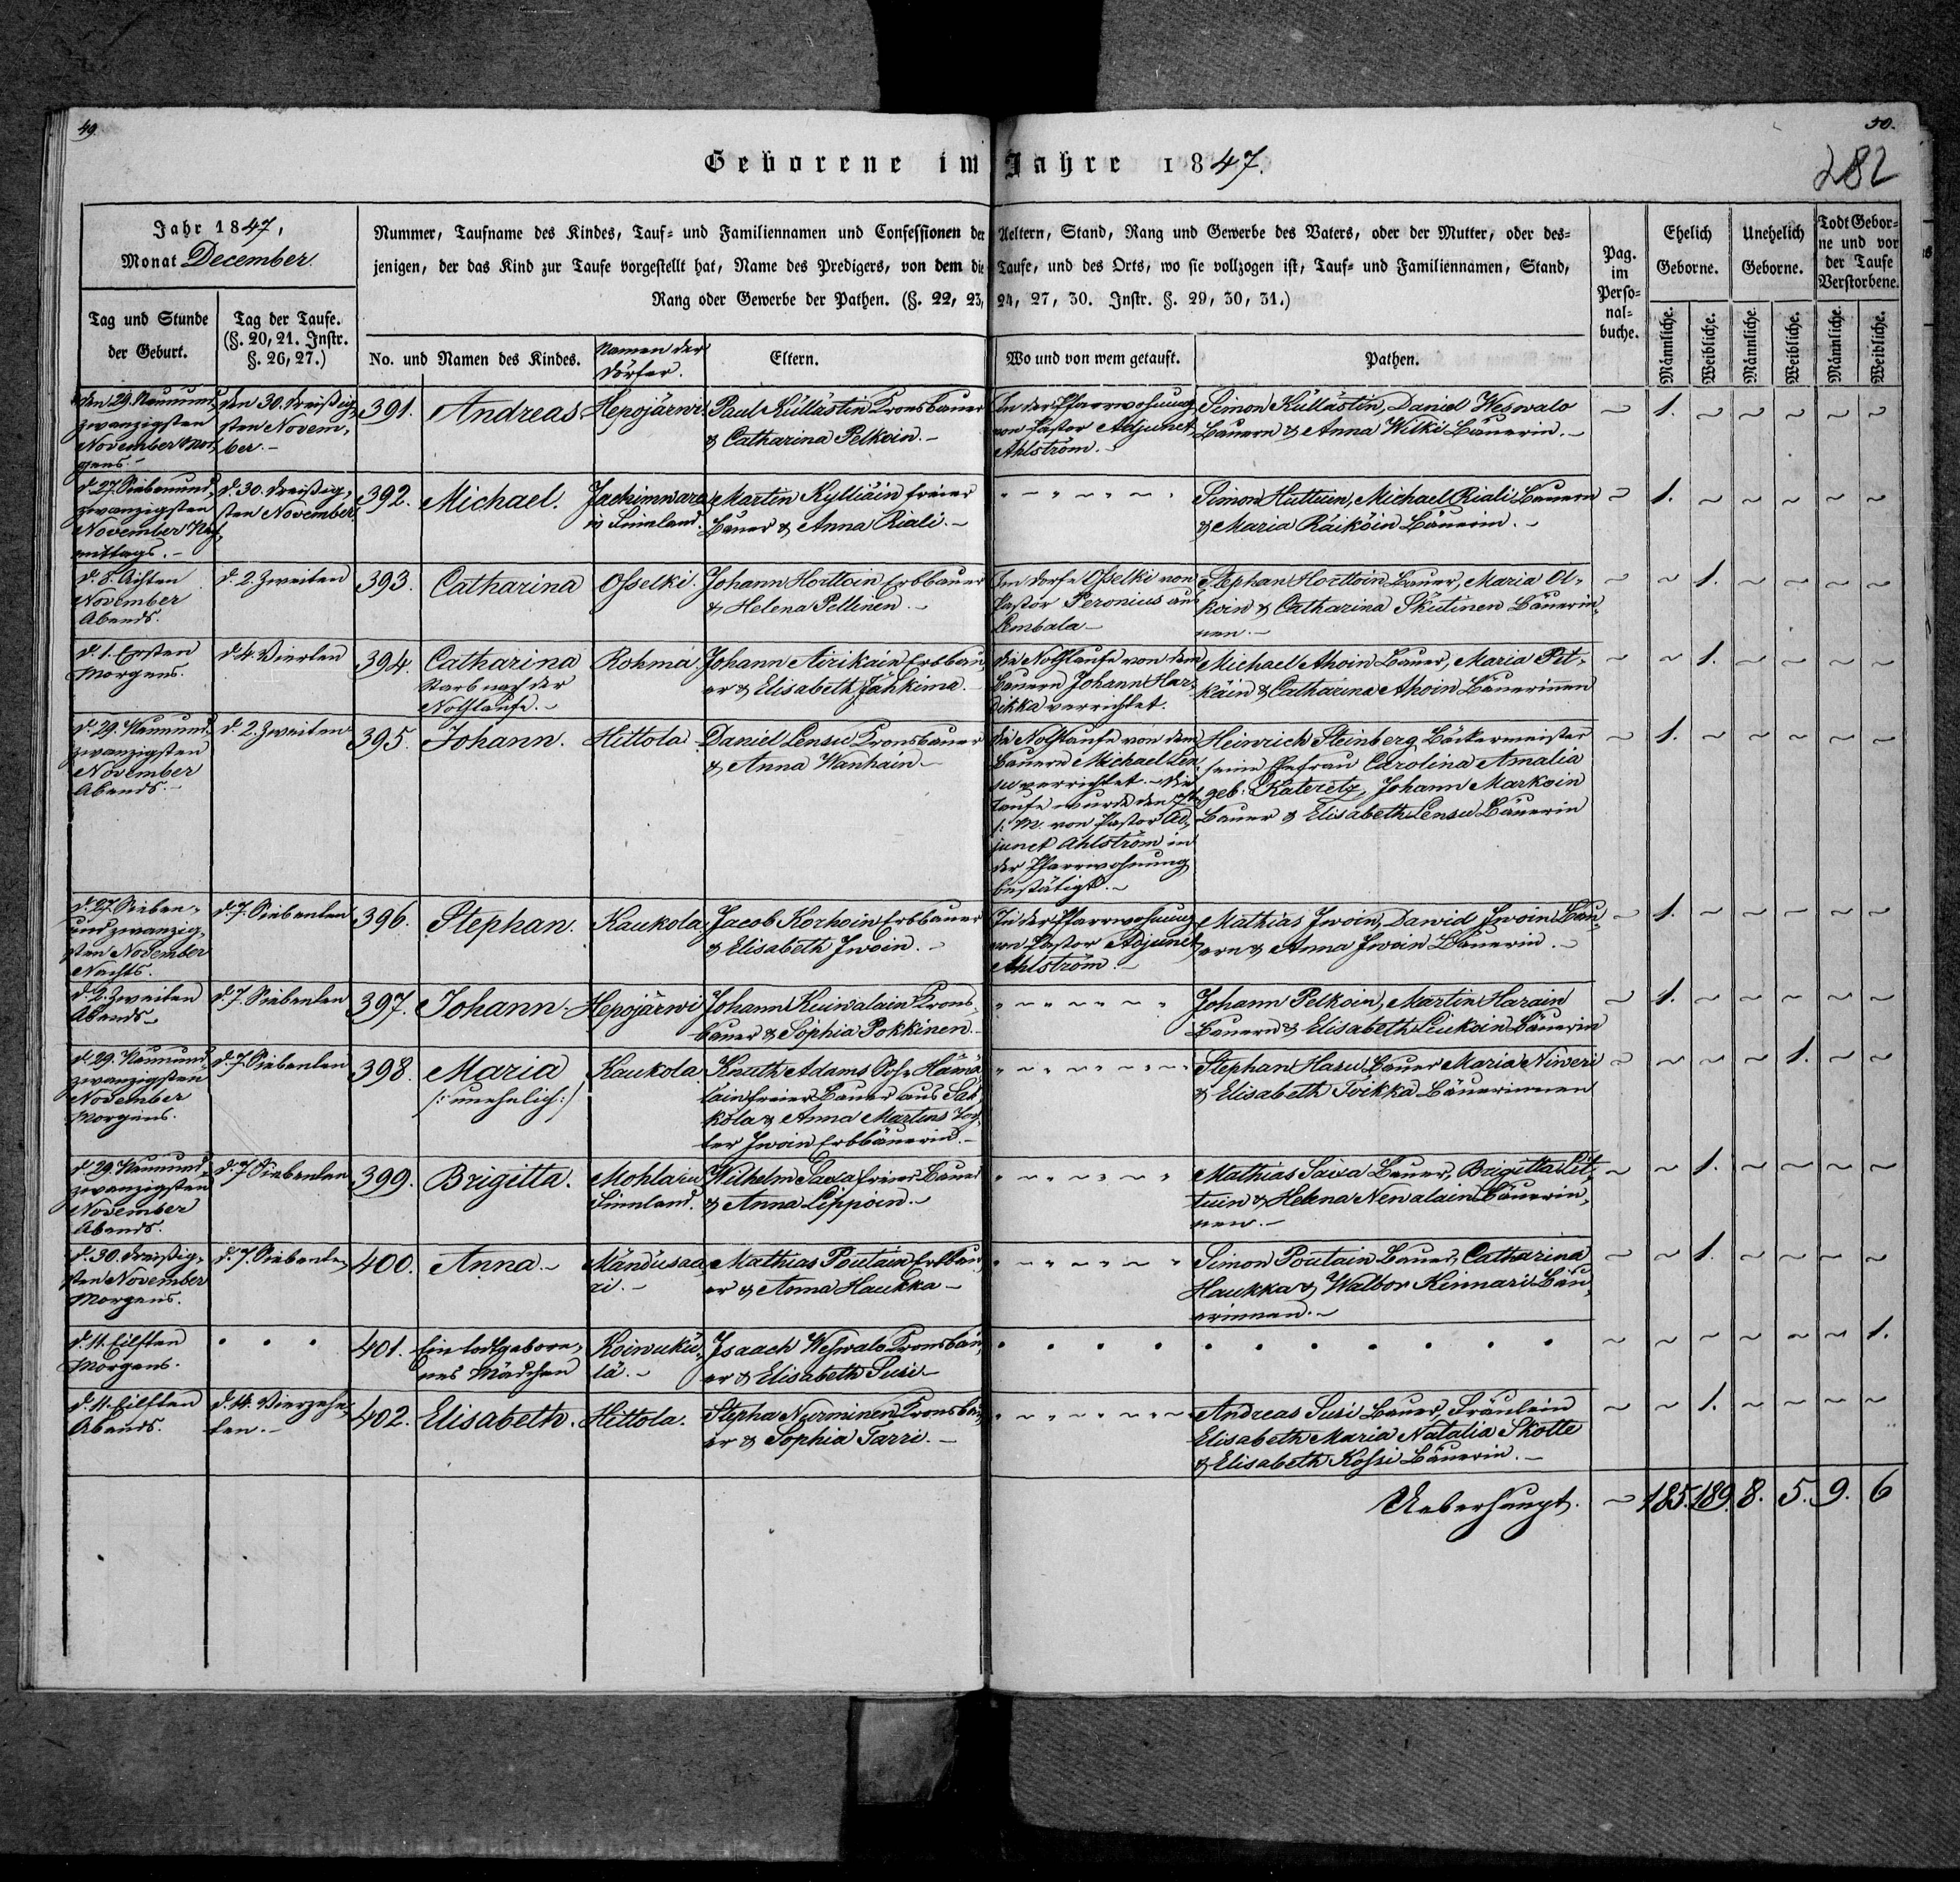 49.
50.
282
Geborene im Jahre 1847.
Jahr 1847,
Monat December.
Tag und Stunde
der Geburt.
Tag der Taufe.
(§. 20, 21. Instr.
§. 26, 27.)
Nummer, Taufname des Kindes, Tauf- und Familiennamen und Confessionen der Aeltern, Stand, Rang und Gewerbe des Vaters, oder der Mutter, oder des-
jenigen, der das Kind zur Taufe vorgestellt hat, Name des Predigers, von dem die Taufe, und des Orts, wo sie vollzogen ist, Tauf- und Familiennamen, Stand,
Rang oder Gewerbe der Pathen. (§. 22, 23, 24, 27, 30. Instr. §. 29, 30, 31.)
No. und Namen des Kindes.
Namen der
Dörfer.
Eltern.
Wo und von wem getauft.
Pathen.
Pag.
im
Perso-
nal-
buche.
Ehelich
Geborne.
Unehelich
Geborne.
Todt Gebor-
ne und vor
der Taufe
Verstorbene.
Männliche.
Weibliche.
Männliche.
Weibliche.
Männliche.
Weibliche.
den 29. Neunund,
zwanzigsten
November Mor,
gens.-
den 30. dreißig,
sten Novem,
ber.-
391. Andreas
Hepojärwi.
Paul Küllästin Kronsbauer
& Catharina Pelkoin.-
In der Pfarrwohnung
von Pastor Adjunct
Ahlström.-
Simon Küllästin, Daniel Weswalo
Bauern & Anna Wilki Bäuerin.-
~ 1. ~ ~ ~ ~ ~
d. 27. Siebenund,
zwanzigsten
November Nach,
mittags.-
d. 30. dreißig,
sten November.
392. Michael.
Jachimwara
in Finnland.
Martin Kylliäin freier
Bauer & Anna Riali.-
Simon Huttuin, Michael Riali Bauern
& Maria Räiköin Bäuerin.-
~ 1. ~ ~ ~ ~ ~
d. 8. Achten
November
Abends.
d. 2. Zweiten
393. Catharina
Osselki.
Johann Horttoin Erbbauer
& Helena Pellinen.-
Im Dorfe Osselki von
Pastor Peronius aus
Lembala-
Stephan Horttoin Bauer, Maria Ol-
koin & Catharina Skutinen Bäuerin,
nen.-
~ ~ 1. ~ ~ ~ ~
d. 1. Ersten
Morgens.
d. 4. Vierten
394. Catharina
Starb nach der
Nothtaufe.-
Rohma.
Johann Airikain Erbbau,
er & Elisabeth Jähkimä.
die Nothtaufe von dem
Bauern Johann Har-
dikka verrichtet.
Michael Ahoin Bauer, Maria Pit-
käin & Catharina Ahoin Bäuerinnen
~ ~ 1. ~ ~ ~ ~
d. 29. Neunund,
zwanzigsten
November
Abends.-
d. 2. Zweiten
395. Johann.
Hittola.
Daniel Lensu Kronsbauer
& Anna Wanhain-
die Nothtaufe von dem
Bauern Michael Len
su verrichtet.- die
Taufe wurde den
m. von Pastor Ad,
junct Ahlström in
der Pfarrwohnung
bestätigt.-
Heinrich Steinberg Bäckermeister
seine Ehefrau Carolina Amalia
geb: Kateretz, Johann Markoin
Bauer & Elisabeth Lensu Bäuerin
~ 1. ~ ~ ~ ~ ~
d. 27. Sieben-
undzwanzig,
sten November
Nachts.
d. 7. Siebenten
396. Stephan.
Kaukola.
Jacob Korhoin Erbbauer
& Elisabeth Iwoin.-
In der Pfarrwohnung
von Pastor Adjunct
Ahlström.-
Mathias Iwoin, Dawid Iwoin Bau-
ern & Anna Iwoin Bäuerin.-
~ 1. ~ ~ ~ ~ ~
d. 2. Zweiten
Abends-
d. 7. Siebenten
397. Johann
Hepojärwi
Johann Kuiwalain Krons,
bauer & Sophia Pokkinen.-
Johann Pelkoin, Martin Harain
Bauern & Elisabeth Liukoin Bäuerin
~ 1. ~ ~ ~ ~ ~
d. 29. Neunund,
zwanzigsten
November
Morgens.
d. 7. Siebenten
398. Maria
/: unehelich :/
Kaukola.
Knuth Adams Sohn Hämä
läin freier Bauer aus Sak
kola & Anna Martins Toch,
ter Iwoin Erbbäuerin.-
Stephan Hasu Bauer Maria Niweri
& Elisabeth Toikka Bäuerinnen
~ ~ ~ ~ 1. ~ ~
d. 29. Neunund,
zwanzigsten
November
Abends.
d. 7. Siebenten
399. Brigitta.
Mohla in
Finnland.
Wilhelm Saxa freier Bauer
& Anna Lippoin.-
Mathias Saixa Bauer, Brigitta Lit,
tuin & Helena Newalain Bäuerin,
nen.-
~ ~ 1. ~ ~ ~ ~
d. 30. dreißig,
sten November
Morgens.
d. 7. Siebenten
400. Anna.-
Mändüsaa,
ri.-
Mathias Poutain Erbbau,
er & Anna Haukka-
Simon Poutain Bauer, Catharina
Haukka & Walbor Kinnari Bäu,
erinnen.-
~ ~ 1. ~ ~ ~ ~
d. 11. Eilften
Morgens.
401. Ein todtgebore,
nes Mädchen
Koiwukü,
lä.-
Isaach Weswalo Kronsbau,
er & Elisabeth Susi-
~ ~ ~ ~ ~ ~ 1.
d. 11. Eilften
Abends.
d. 14. Vierzehn,
ten.-
402. Elisabeth.
Hittola.
Stepha Nurminen Kronsbau,
er & Sophia Tarri.-
Andreas Susi Bauer, Fräulein
Elisabeth Maria Natalia Skotte
& Elisabeth Kossi Bäuerin.-
~ ~ 1. ~ ~ ~ ~
Ueberhaupt. ~ 185. 189. 8. 5. 9. 6